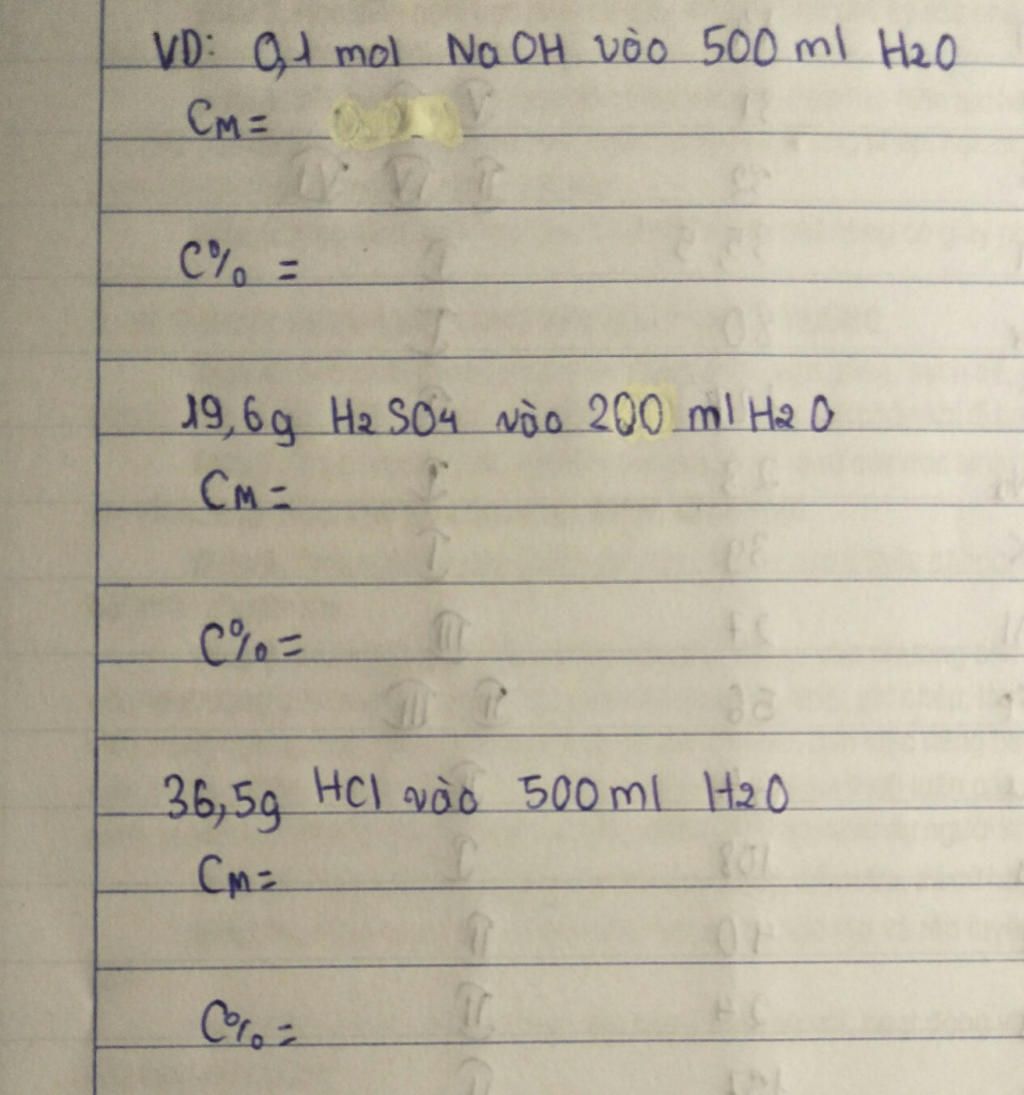 VD: 0,1 mol NaOH vào 500 ml H2O
CM=
C% =
19,6g H2SO4 vào 200 ml H2O
CM=
C%=
36,5g HCl vào 500ml H2O
CM=
C%=